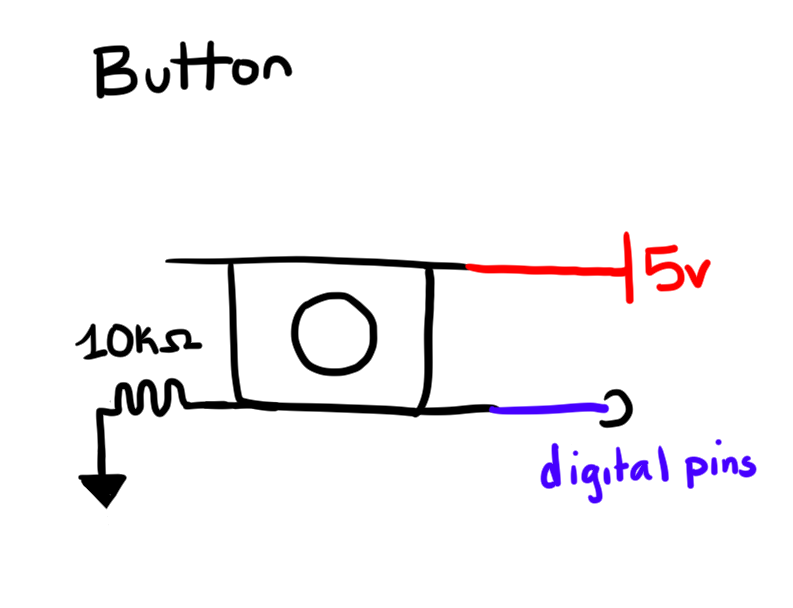 Button
5v
10KΩ
digital pins